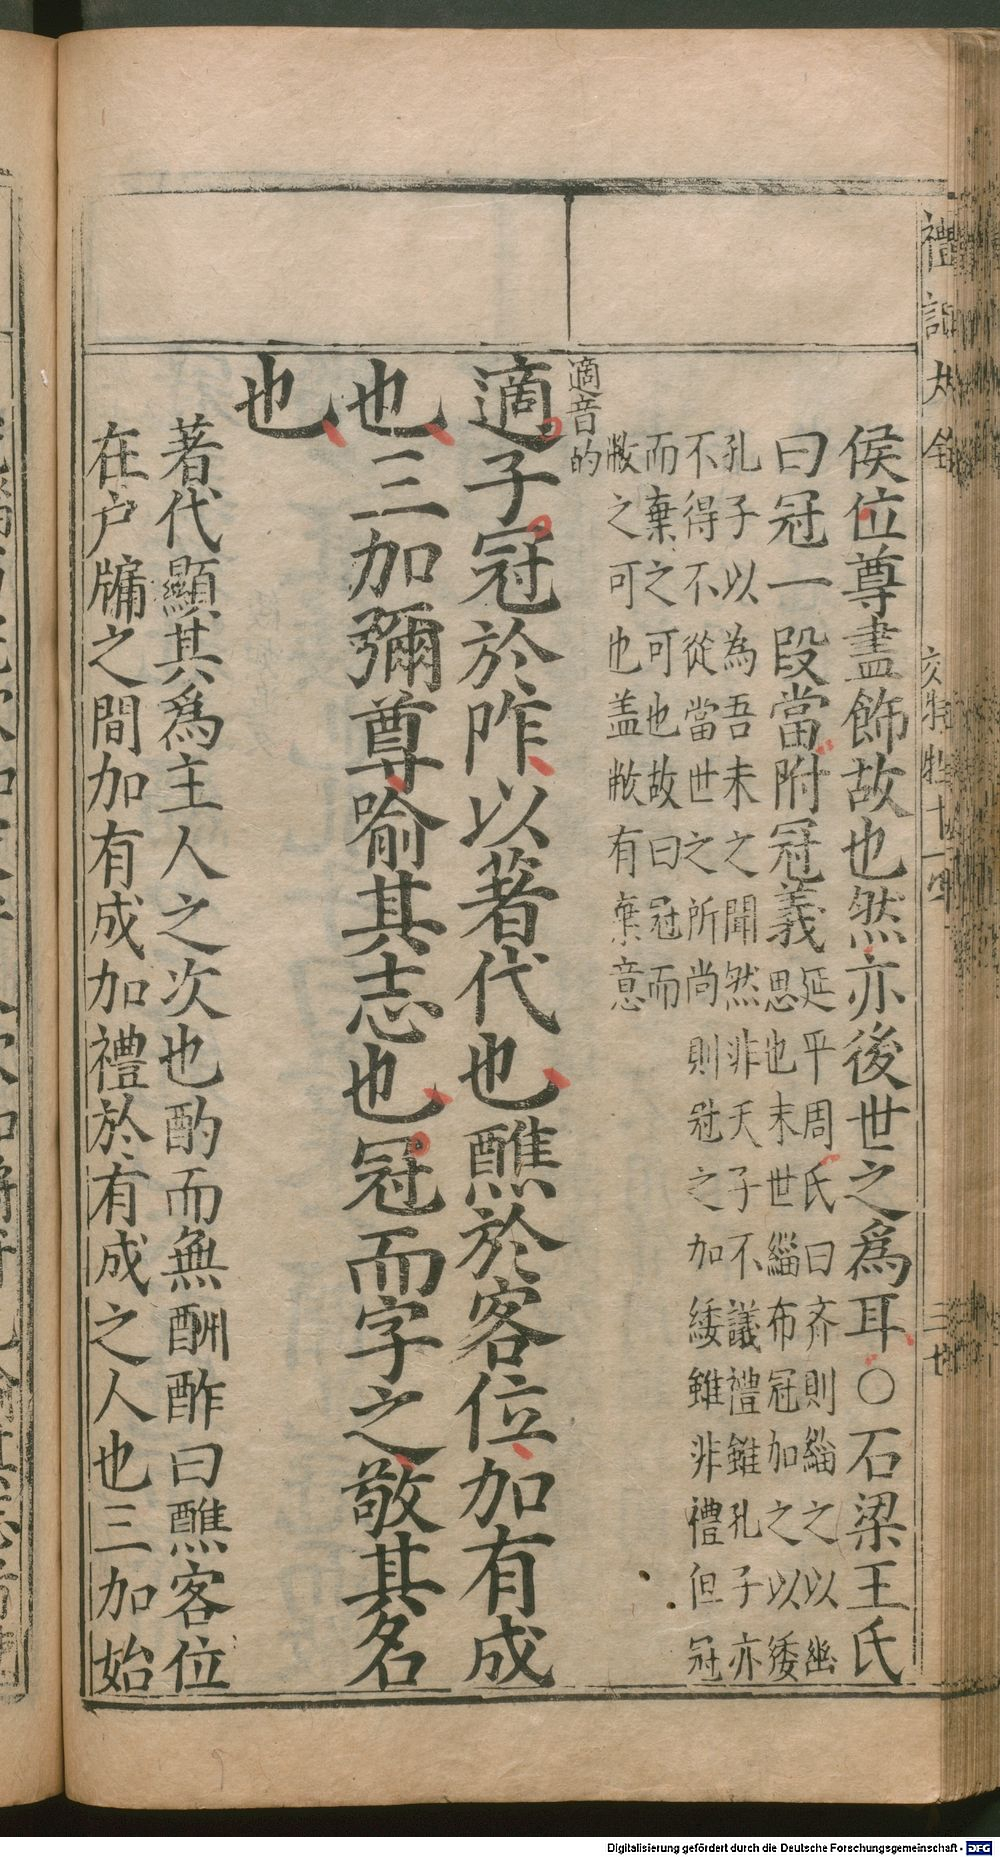 禮記大全
侯位尊盡飾故也然亦後世之爲耳○石梁王氏
曰冠一段當附冠義
延平周氏曰齊則緇之以幽
思也末世緇布冠加之以緌
孔子以為吾未之聞然非天子不議禮雖孔子亦
不得不從當世之所尚則冠之加緌雖非禮但冠
而棄之可也故曰冠而
敝之可也盖敝有棄意
適音的
適子冠於阼以著代也醮於客位加有成
也三加彌尊喻其志也冠而字之敬其名
也
著代顯其爲主人之次也酌而無酬酢曰醮客位
在户牖之間加有成加禮於有成之人也三加始
Digitalisierung gefördert durch die Deutsche Forschungsgemeinschaft - DFG